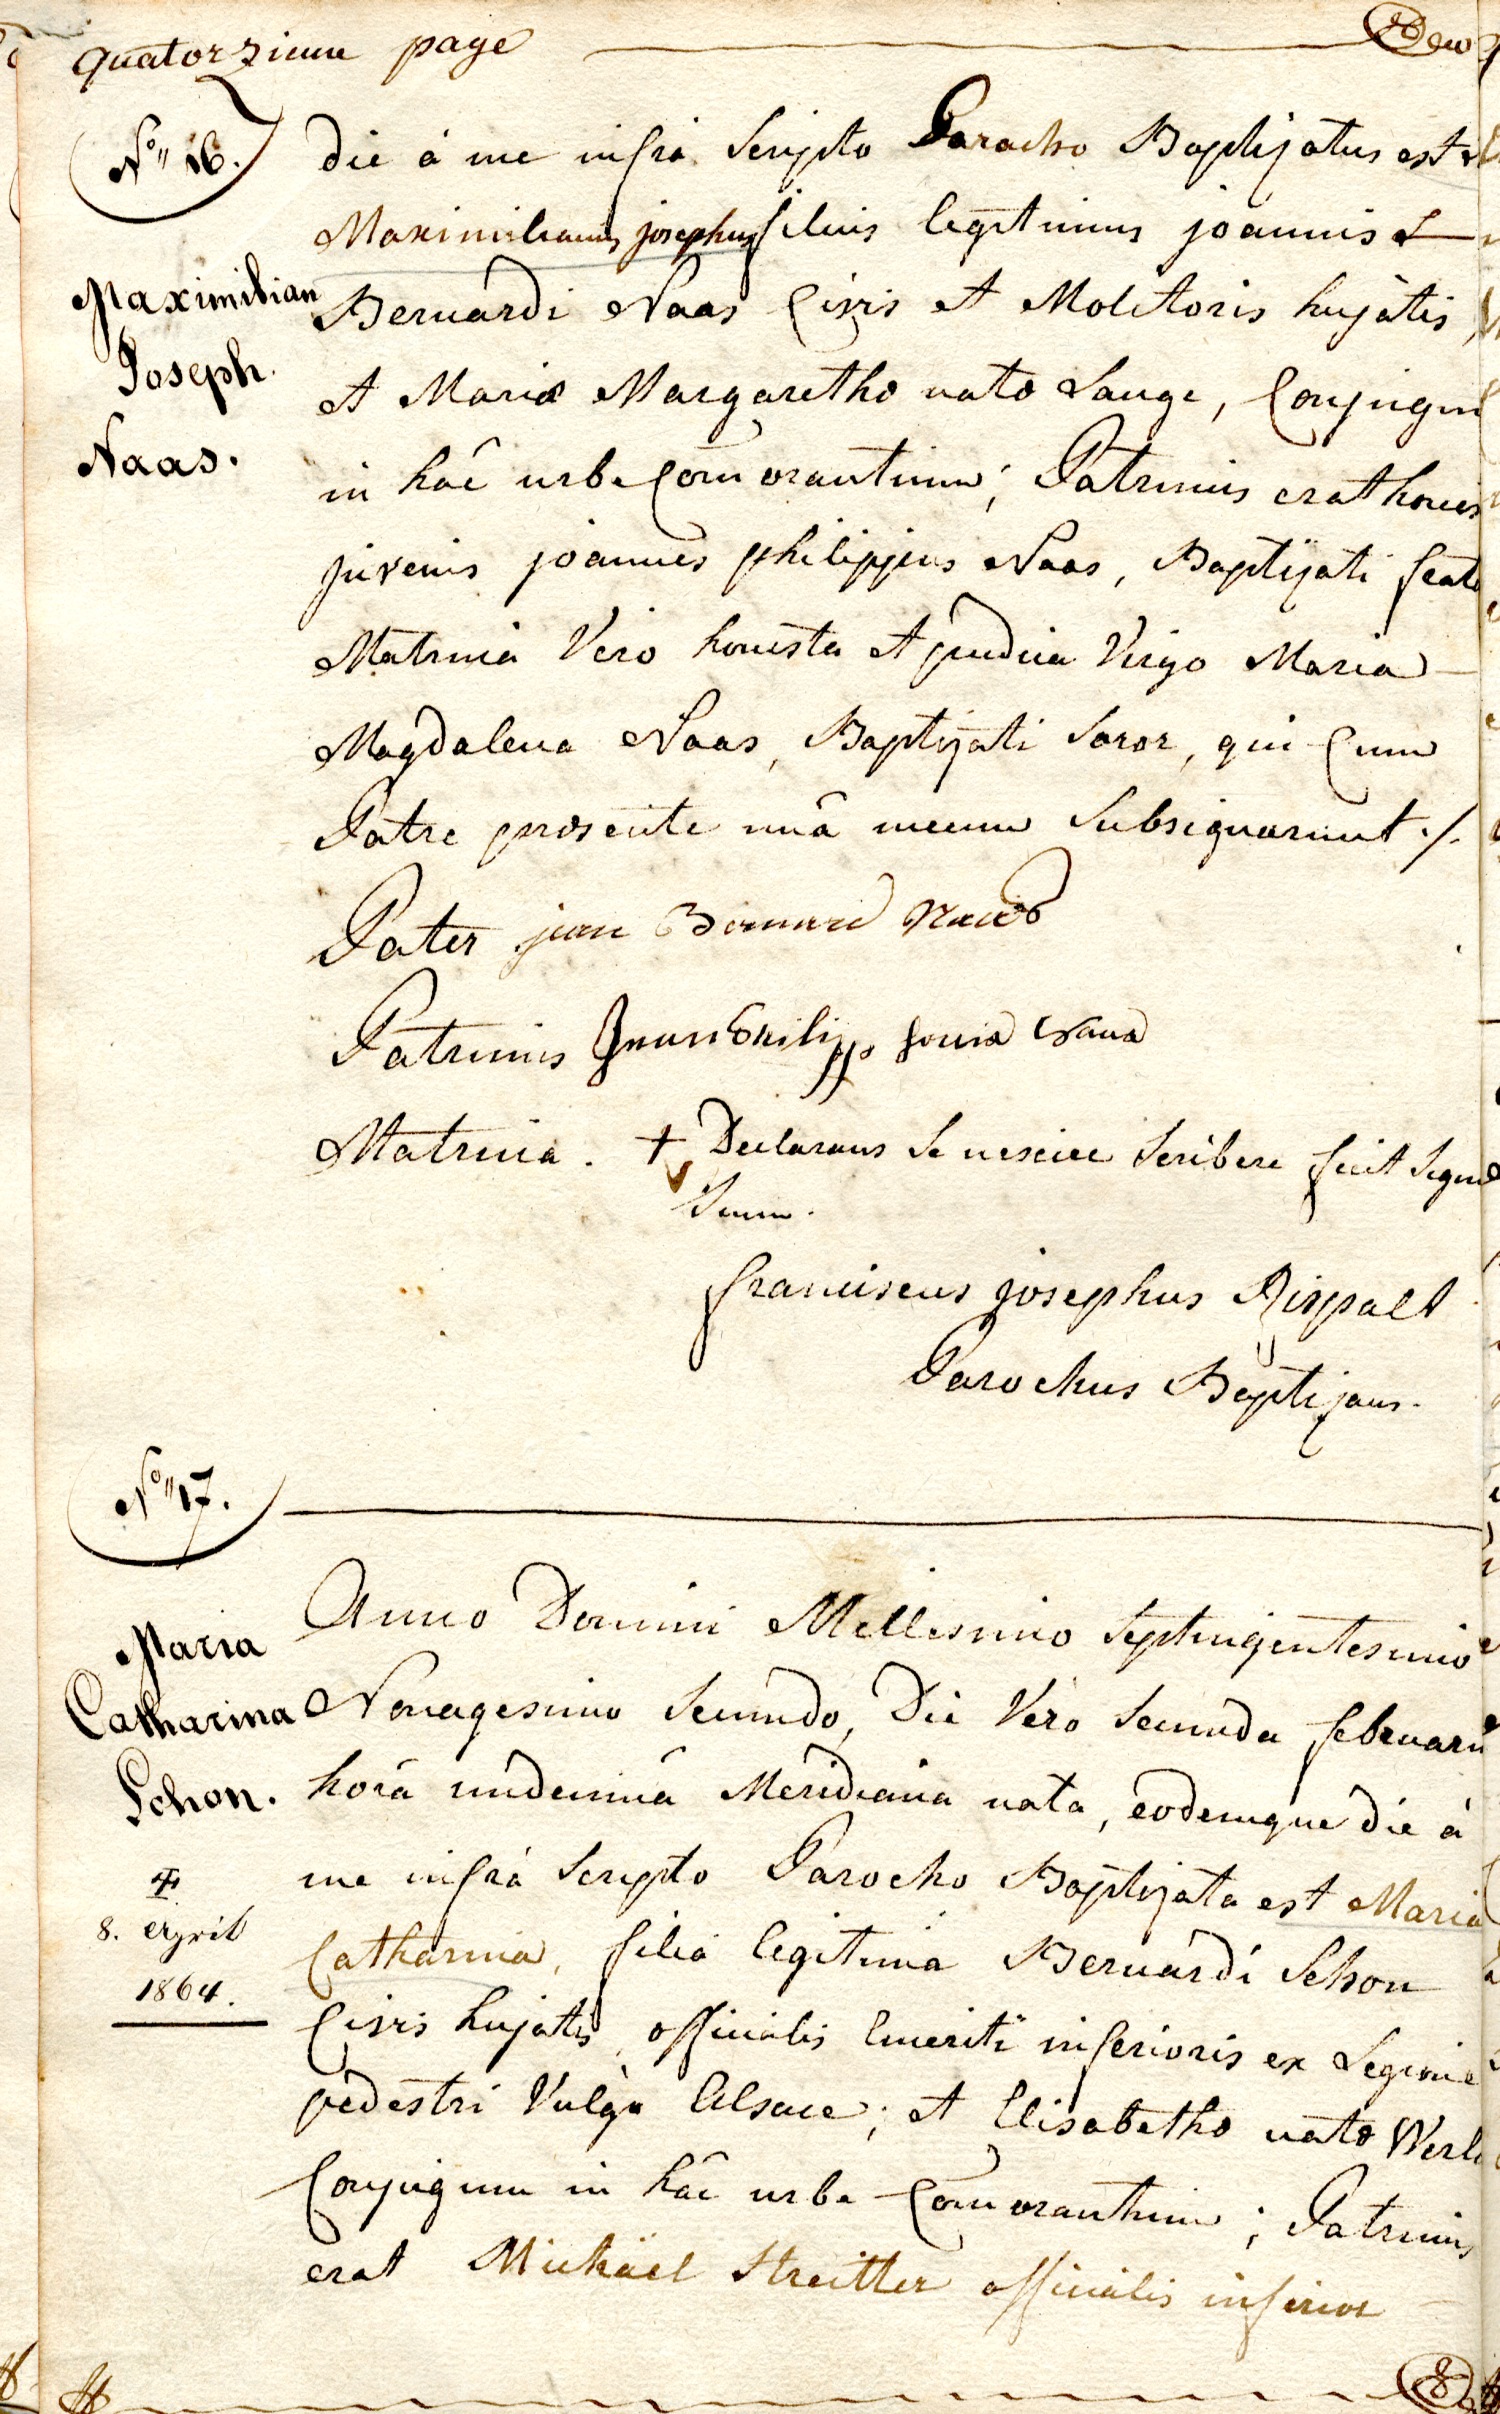 quatorzieme page
No 16.
Maximilian
Joseph
Naas.
die á me infrá Scripto Parocho Baptizatus est
Maximilianus josephus filius legitimus joannis
Bernardi Naas Civis et Molitoris hujatis,
et Mariæ Margarethæ natæ Lange, Conjugum
in hâc urbe Comorantium; Patrinus erat
juvenis joannes philippus Naas, Baptizati
Matrina Vero honesta et pudica Virgo Maria
Magdalena Naas, Baptizati Soror, qui Cum
Patre præsente unâ mecum Subsignarunt ./.
Pater jean Bernard Naas
Patrinus
Matrina. + Declarans Se nescire Scribere fecit Signum
Suum.
franciscus josephus Rispalt
Parochus Baptizans.
No 17.
Maria
Catharina
Schon.
8. April
1864.
Anno Domini Millesimo Septingentesimo
Nonagesimo Secundo, Die Vero Secunda februarii
horâ undecimâ Meridiana nata, eodemque die á
me infrá Scripto Parocho Baptizata est Maria
Catharina, filia legitima Bernardi Schon
Civis hujatis, officialis Emeriti inferioris ex Legione
pedestri Vulgo Alsace; et Elisabethæ natæ
Conjugum in hâc urbe Comorantium; Patrinus
erat Michäel Streitter officialis inferior